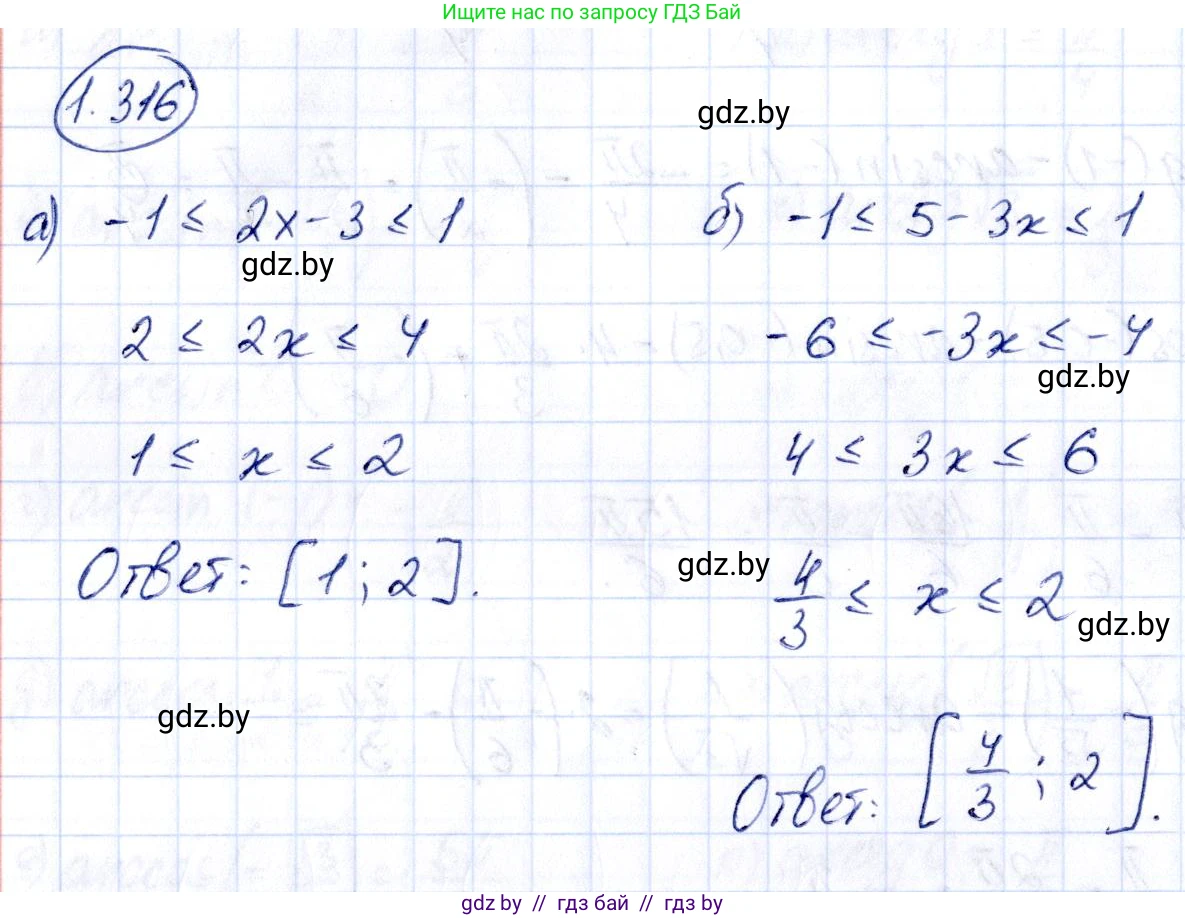 Ищите нас по запросу ГДЗ Бай
1.316
gdz.by
а) -1 ≤ 2x - 3 ≤ 1
gdz.by
2 ≤ 2x ≤ 4
1 ≤ x ≤ 2
Ответ: [1; 2].
gdz.by
б) -1 ≤ 5 - 3x ≤ 1
-6 ≤ -3x ≤ -4
gdz.by
4 ≤ 3x ≤ 6
gdz.by
4/3 ≤ x ≤ 2
gdz.by
Ответ: [4/3; 2].
gdz.by // гдз бай // гдз by